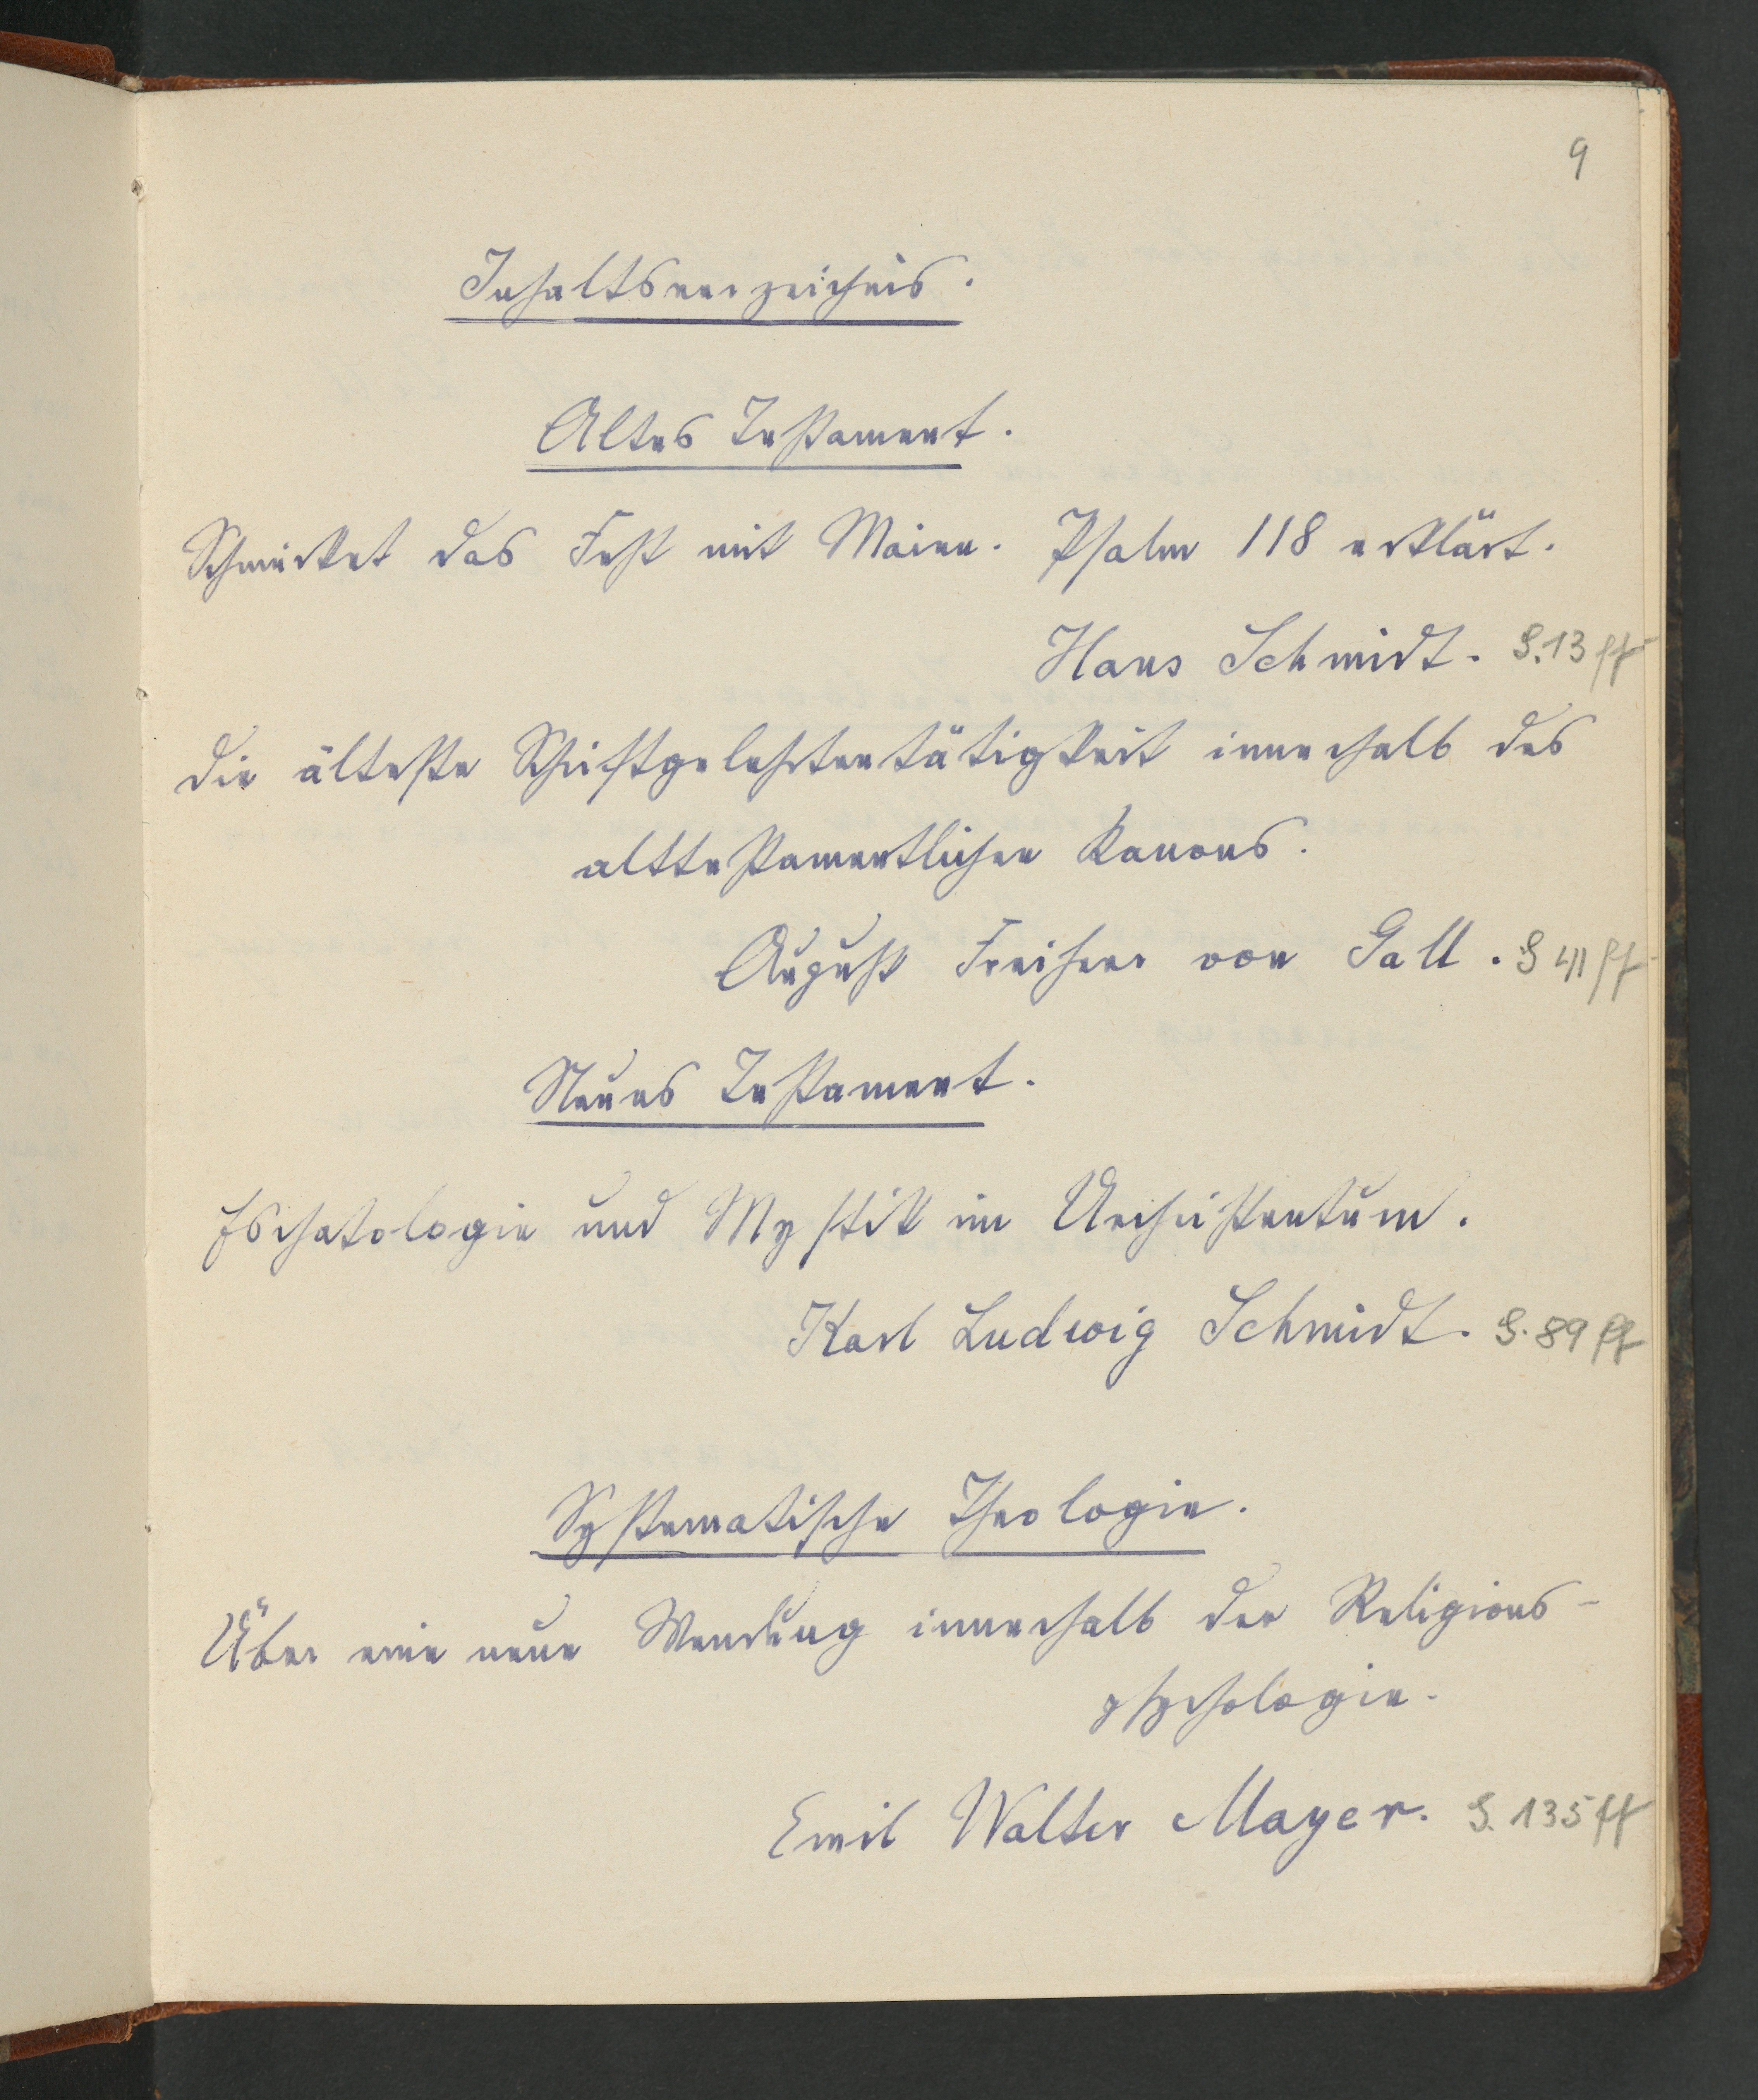 9
Inhaltsverzeichnis.
Altes Testament.
Schmücket das Fest mit Maien. Psalm 118 erklärt.
Hans Schmidt. S. 13 ff
Die älteste Schriftgelehrtentätigkeit innerhalb des
alttestamentlichen Kanons.
August Freiherr von Gall. S 41 ff
Neues Testament.
Eschatologie und Mystik im Urchristentum.
Karl Ludwig Schmidt. S. 89 ff
Systematische Theologie.
Über eine neue Wendung innerhalb der Religions-
psychologie.
Emil Walter Mayer. S. 135 ff